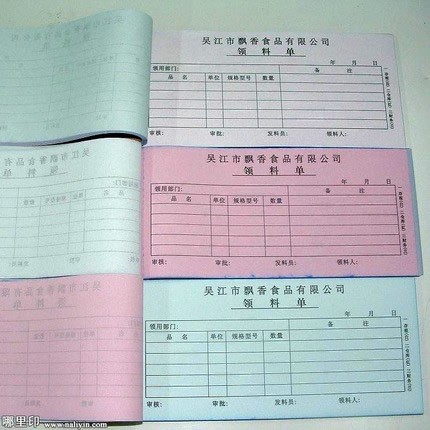 吴江市飘香食品有限公司
领 料 单
领用部门: 年 月 日
品 名 单位 规格型号 数量 备 注
审核: 审批: 发料员: 领料人:
吴江市飘香食品有限公司
领 料 单
领用部门: 年 月 日
品 名 单位 规格型号 数量 备 注
审核: 审批: 发料员: 领料人:
吴江市飘香食品有限公司
领 料 单
领用部门: 年 月 日
品 名 单位 规格型号 数量 备 注
审核: 审批: 发料员: 领料人:
哪里印 www.naliyin.com